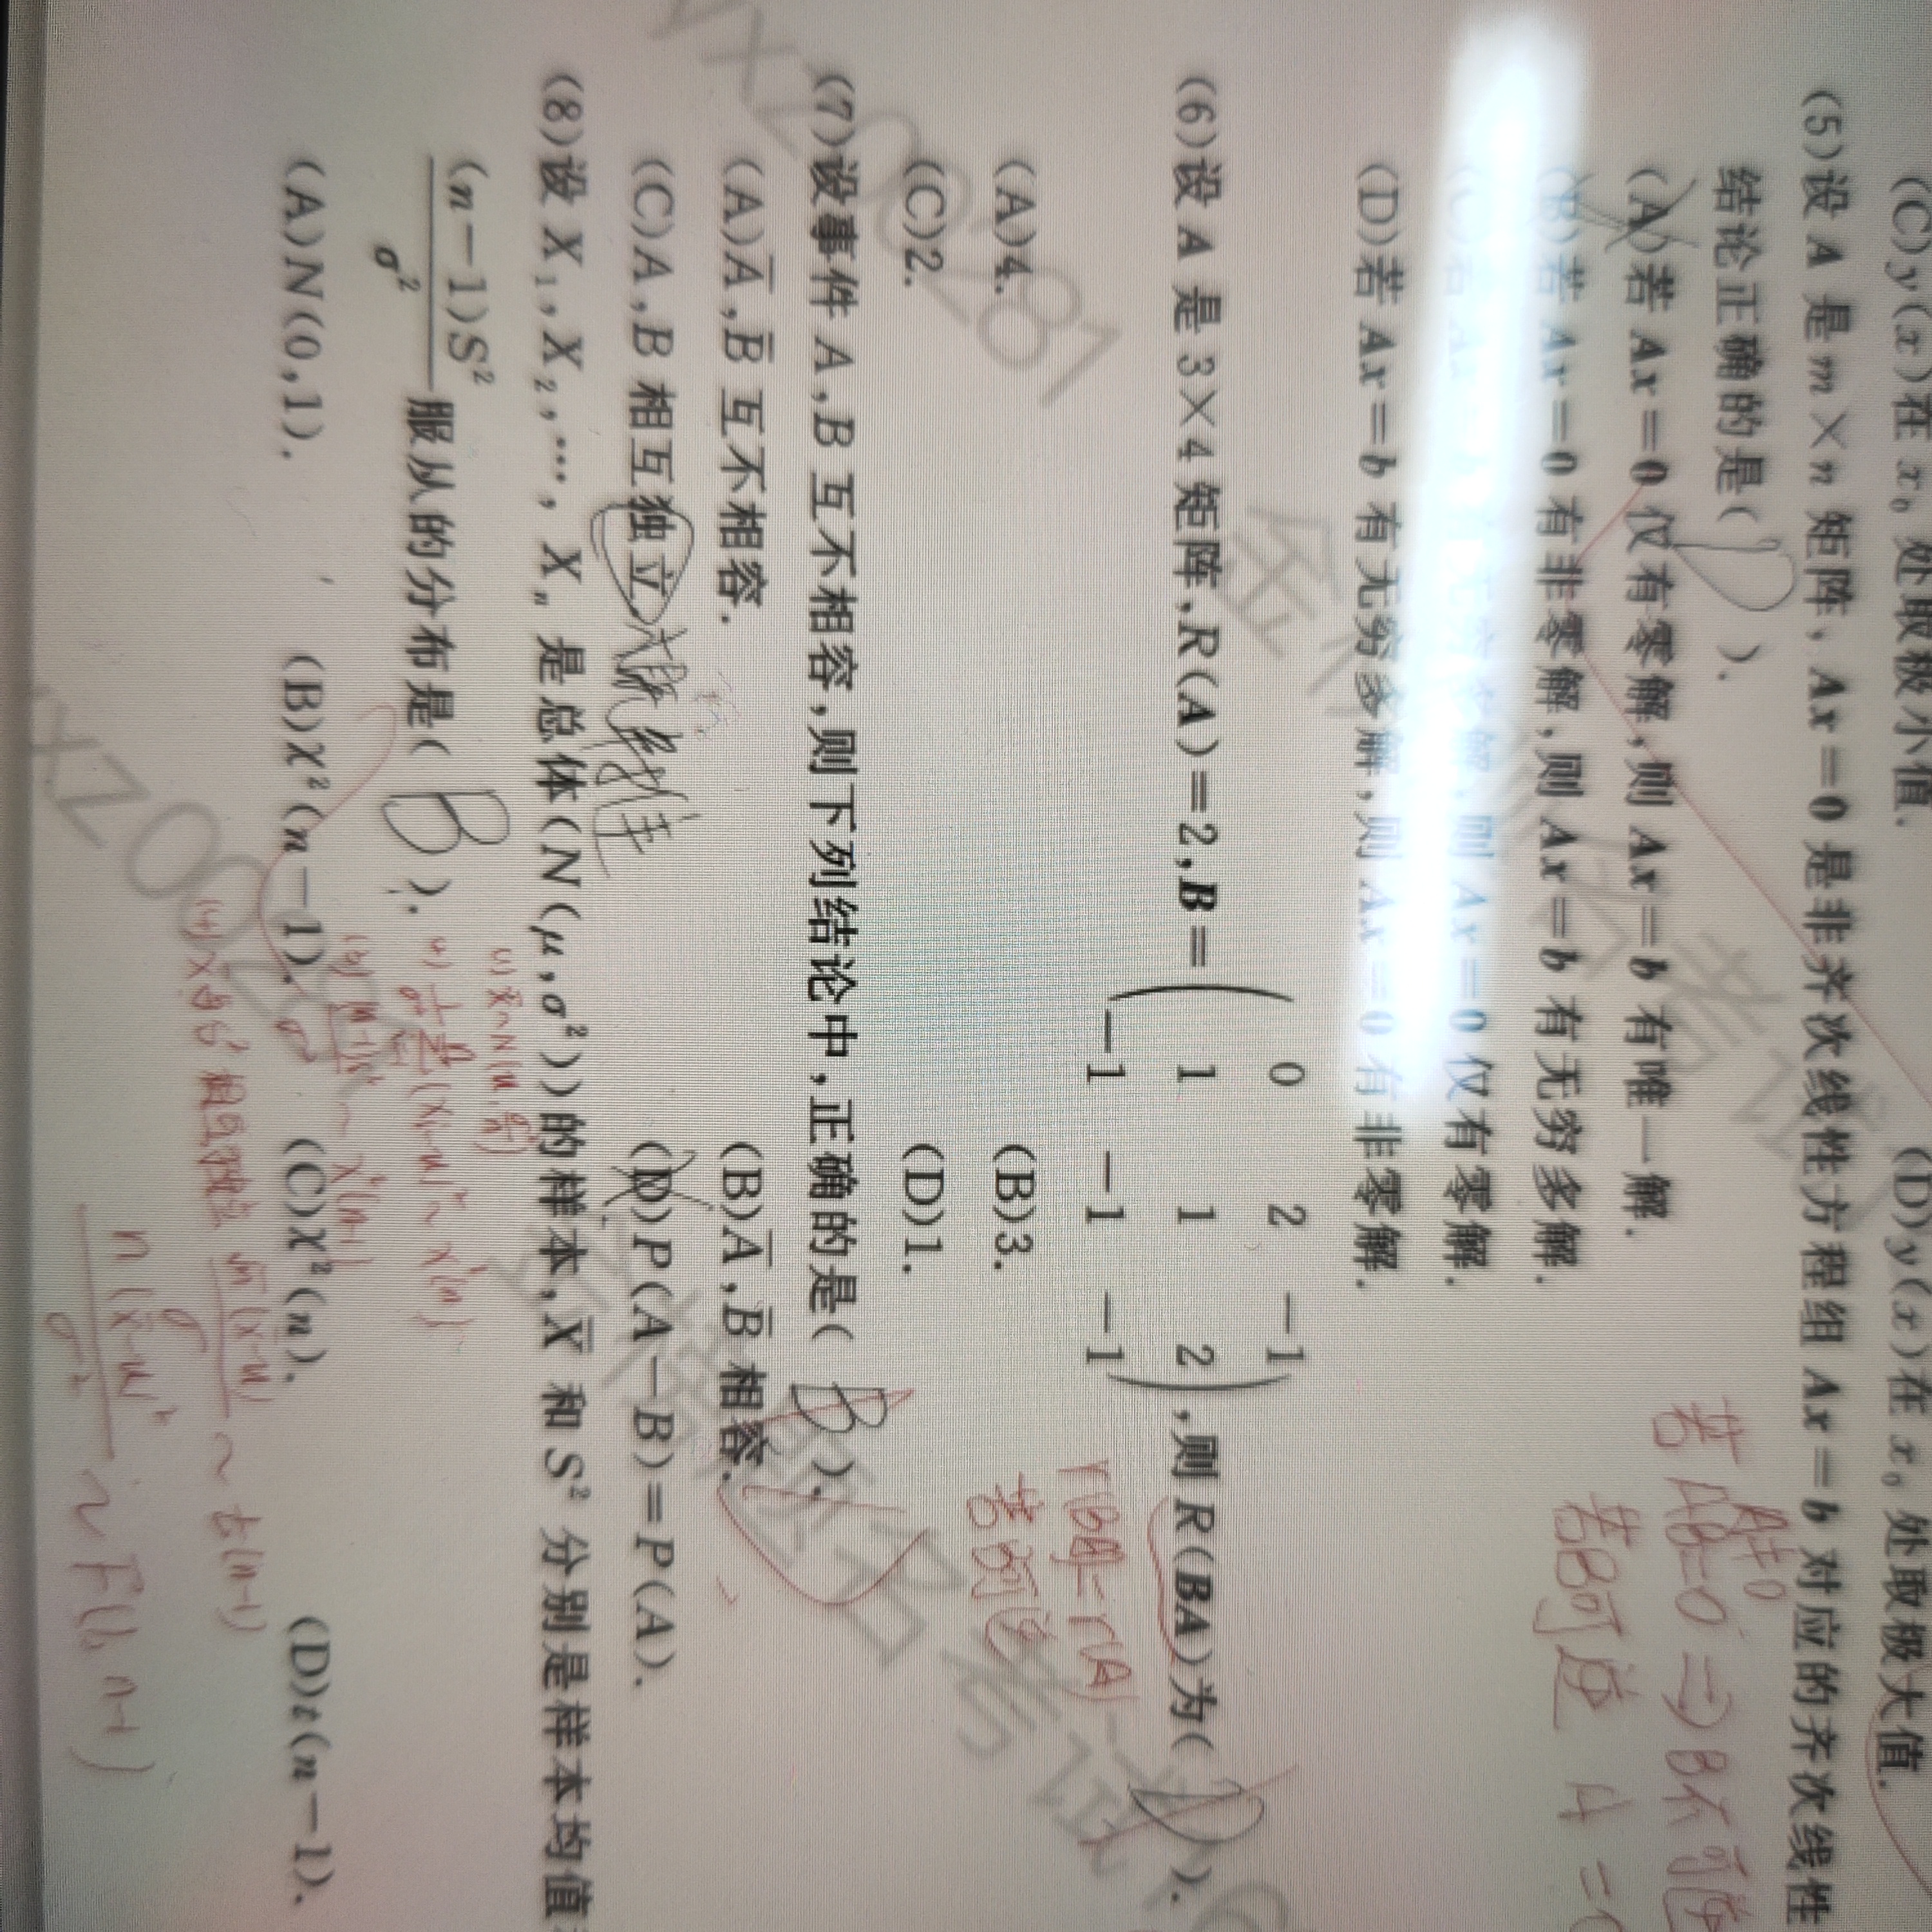 (C)y(x)在 x₀ 处取极小值. (D)y(x)在 x₀ 处取极大值.
(5)设 A 是 m×n 矩阵, Ax=0 是非齐次线性方程组 Ax=b 对应的齐次线性
结论正确的是( D ).
(A)若 Ax=0 仅有零解,则 Ax=b 有唯一解.
(B)若 Ax=0 有非零解,则 Ax=b 有无穷多解.
(C)若 Ax 则 Ax=0 仅有零解.
(D)若 Ax=b 有无穷多解,则 Ax=0 有非零解.
A≠0
若AB=0 ⇒ B不可逆
若B可逆 A=0
(6)设 A 是 3×4 矩阵,R(A)=2,B=
0 2 -1
1 1 2
-1 -1 -1
,则 R(BA)为( D ).
(A)4. (B)3.
(C)2. (D)1.
r(BA)=r(A)
若B可逆
(7)设事件 A,B 互不相容,则下列结论中,正确的是( B ).
(A)A̅,B̅ 互不相容. (B)A̅,B̅ 相容.
(C)A,B 相互独立 (D)P(A−B)=P(A).
(8)设 X₁,X₂,…,Xₙ 是总体(N(μ,σ²))的样本,X̅ 和 S² 分别是样本均值
(n−1)S²/σ² 服从的分布是( B ).
(A)N(0,1). (B)χ²(n−1). (C)χ²(n). (D)t(n−1).
(4) X̅与S²相互独立
~ t(n-1)
~ F(1, n-1)